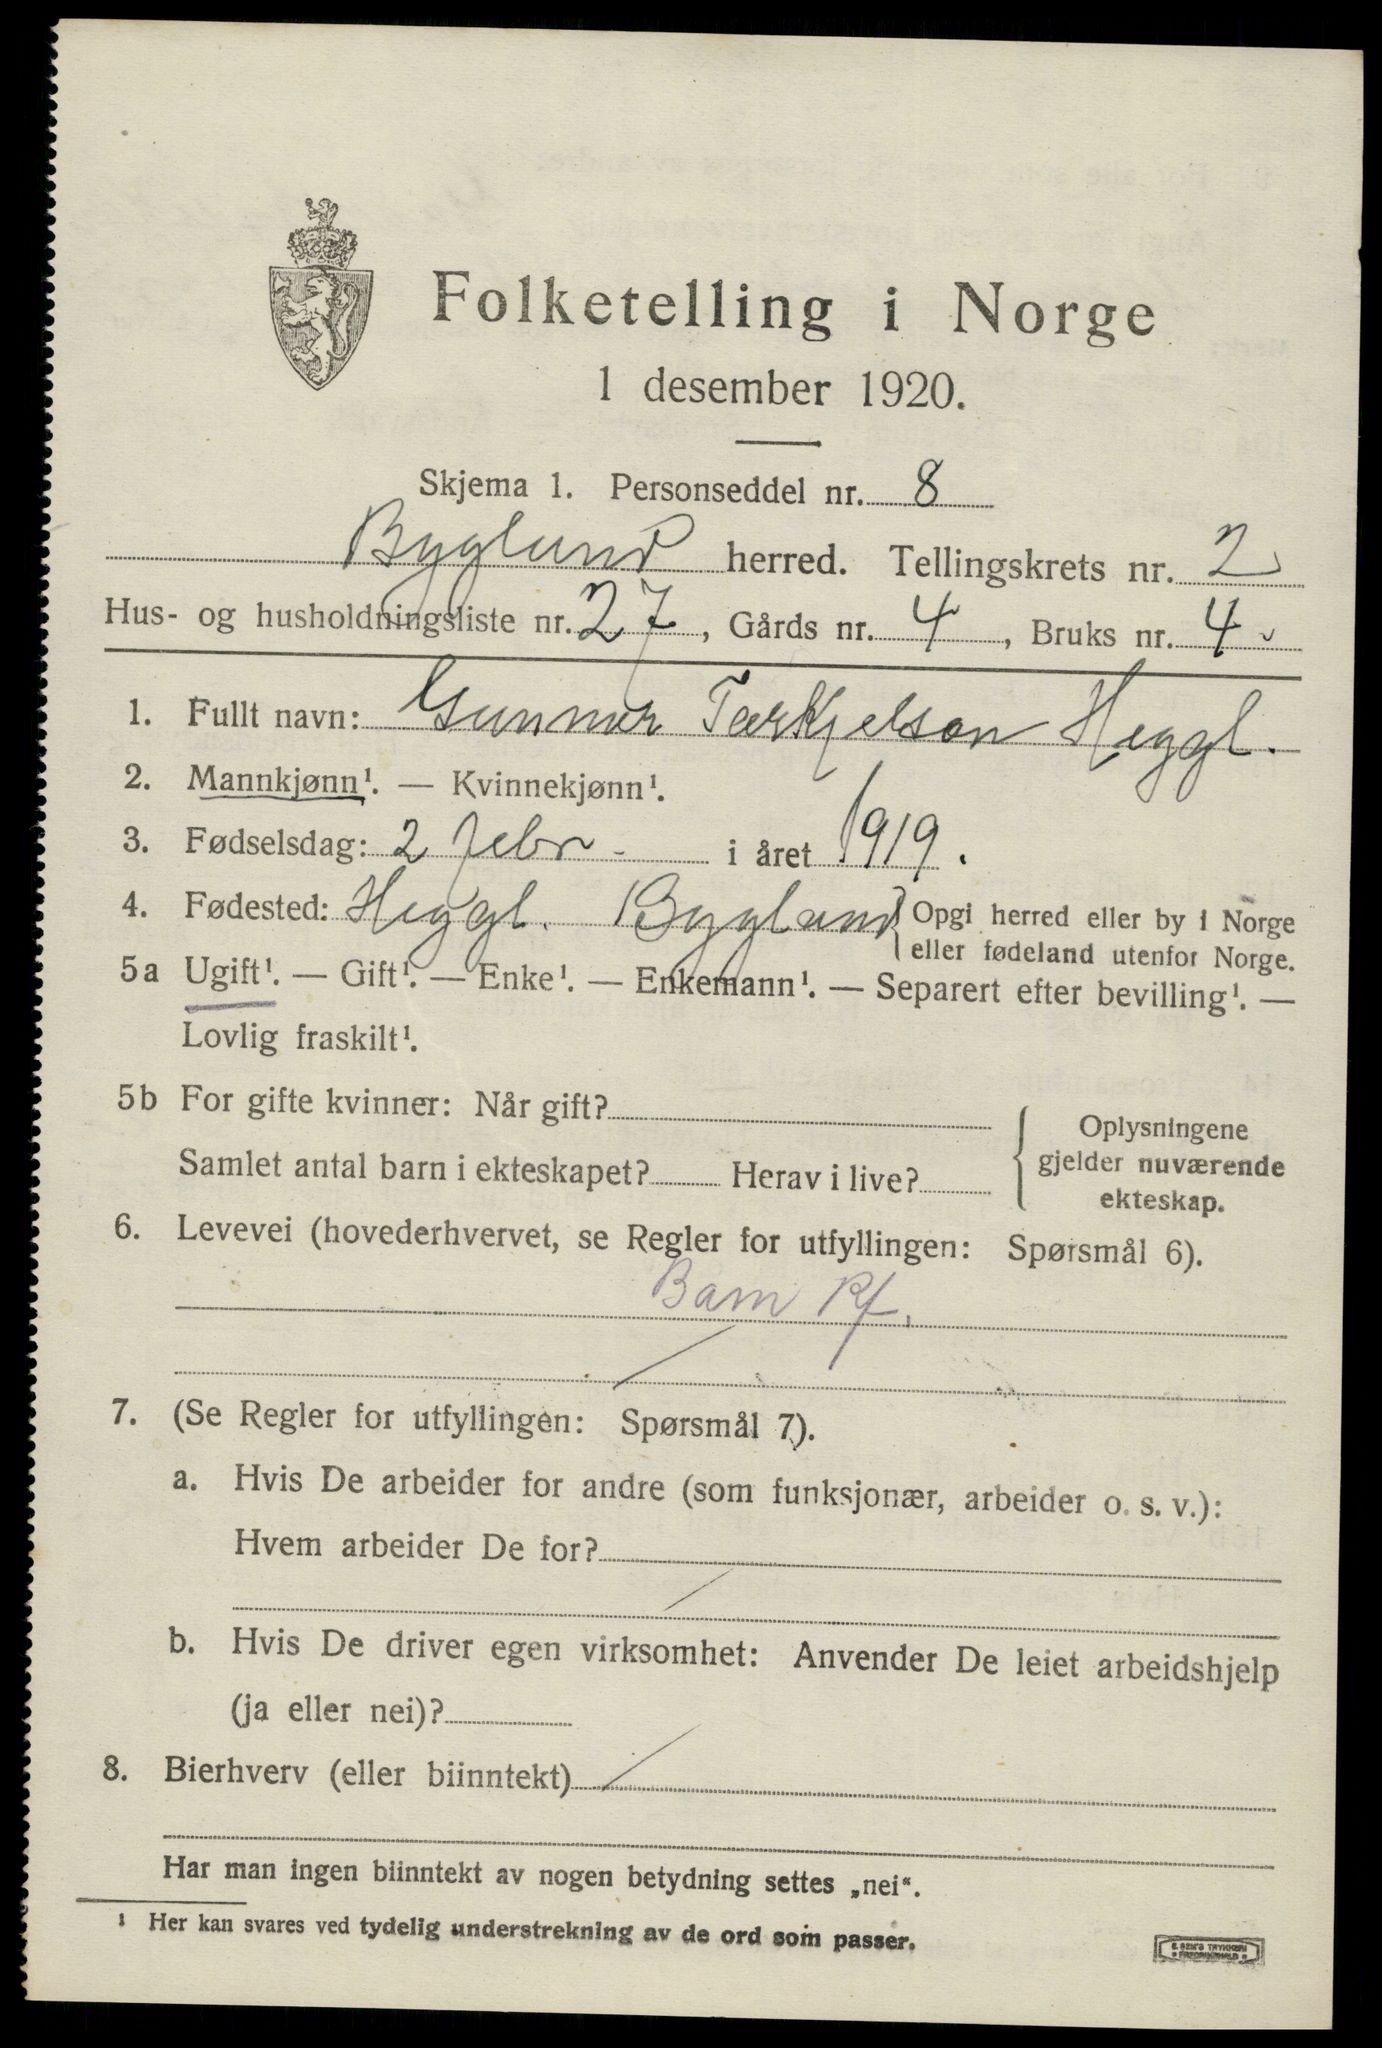 Folketelling i Norge
1 desember 1920.
Skjema 1. Personseddel nr. 8
Bygland herred. Tellingskrets nr. 2
Hus- og husholdningsliste nr. 27, Gårds nr. 4, Bruks nr. 4
1. Fullt navn: Gunnar Tarkjelson Heggl.
2. Mannkjønn¹. — Kvinnekjønn¹.
3. Fødselsdag: 2 febr - i året 1919.
4. Fødested: Heggl. Bygland { Opgi herred eller by i Norge
eller fødeland utenfor Norge.
5a Ugift¹. — Gift¹. — Enke¹. — Enkemann¹. — Separert efter bevilling¹. —
Lovlig fraskilt¹.
5b For gifte kvinner: Når gift?
Samlet antal barn i ekteskapet? Herav i live?
{ Oplysningene
gjelder nuværende
ekteskap.
6. Levevei (hovederhvervet, se Regler for utfyllingen: Spørsmål 6).
Barn
7. (Se Regler for utfyllingen: Spørsmål 7).
a. Hvis De arbeider for andre (som funksjonær, arbeider o. s. v.):
Hvem arbeider De for?
b. Hvis De driver egen virksomhet: Anvender De leiet arbeidshjelp
(ja eller nei)?
8. Bierhverv (eller biinntekt) /
Har man ingen biinntekt av nogen betydning settes „nei“.
¹ Her kan svares ved tydelig understrekning av de ord som passer.
E. SEM'S TRYKKERI
FREDRIKSHALD